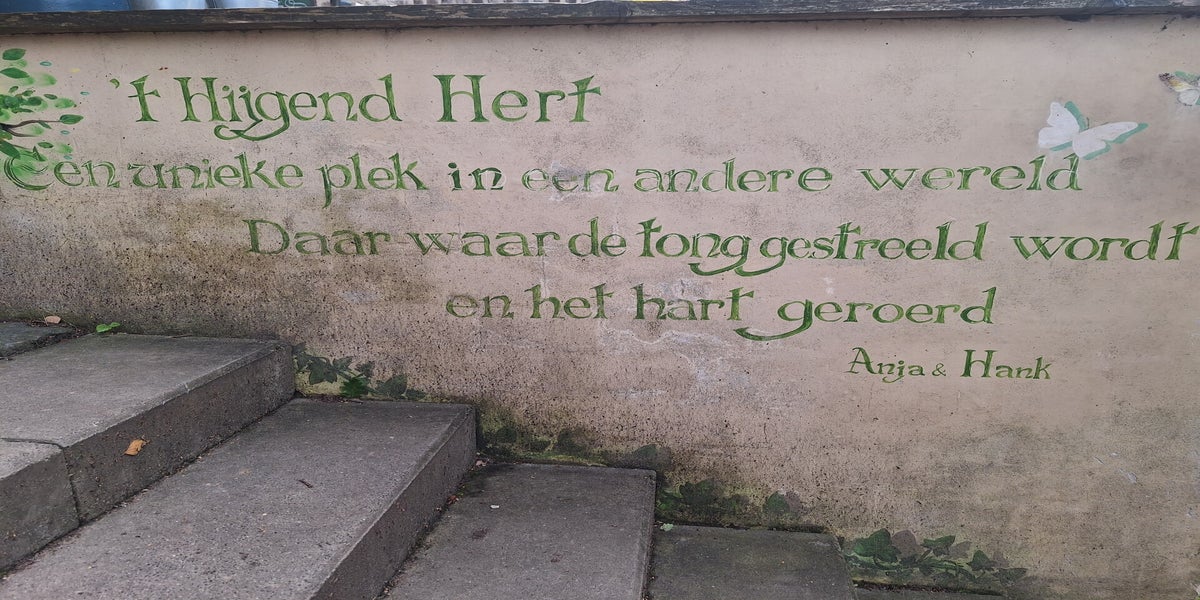 't Hijgend Hert
Een unieke plek in een andere wereld
Daar waar de tong gestreeld wordt
en het hart geroerd
Anja & Hank